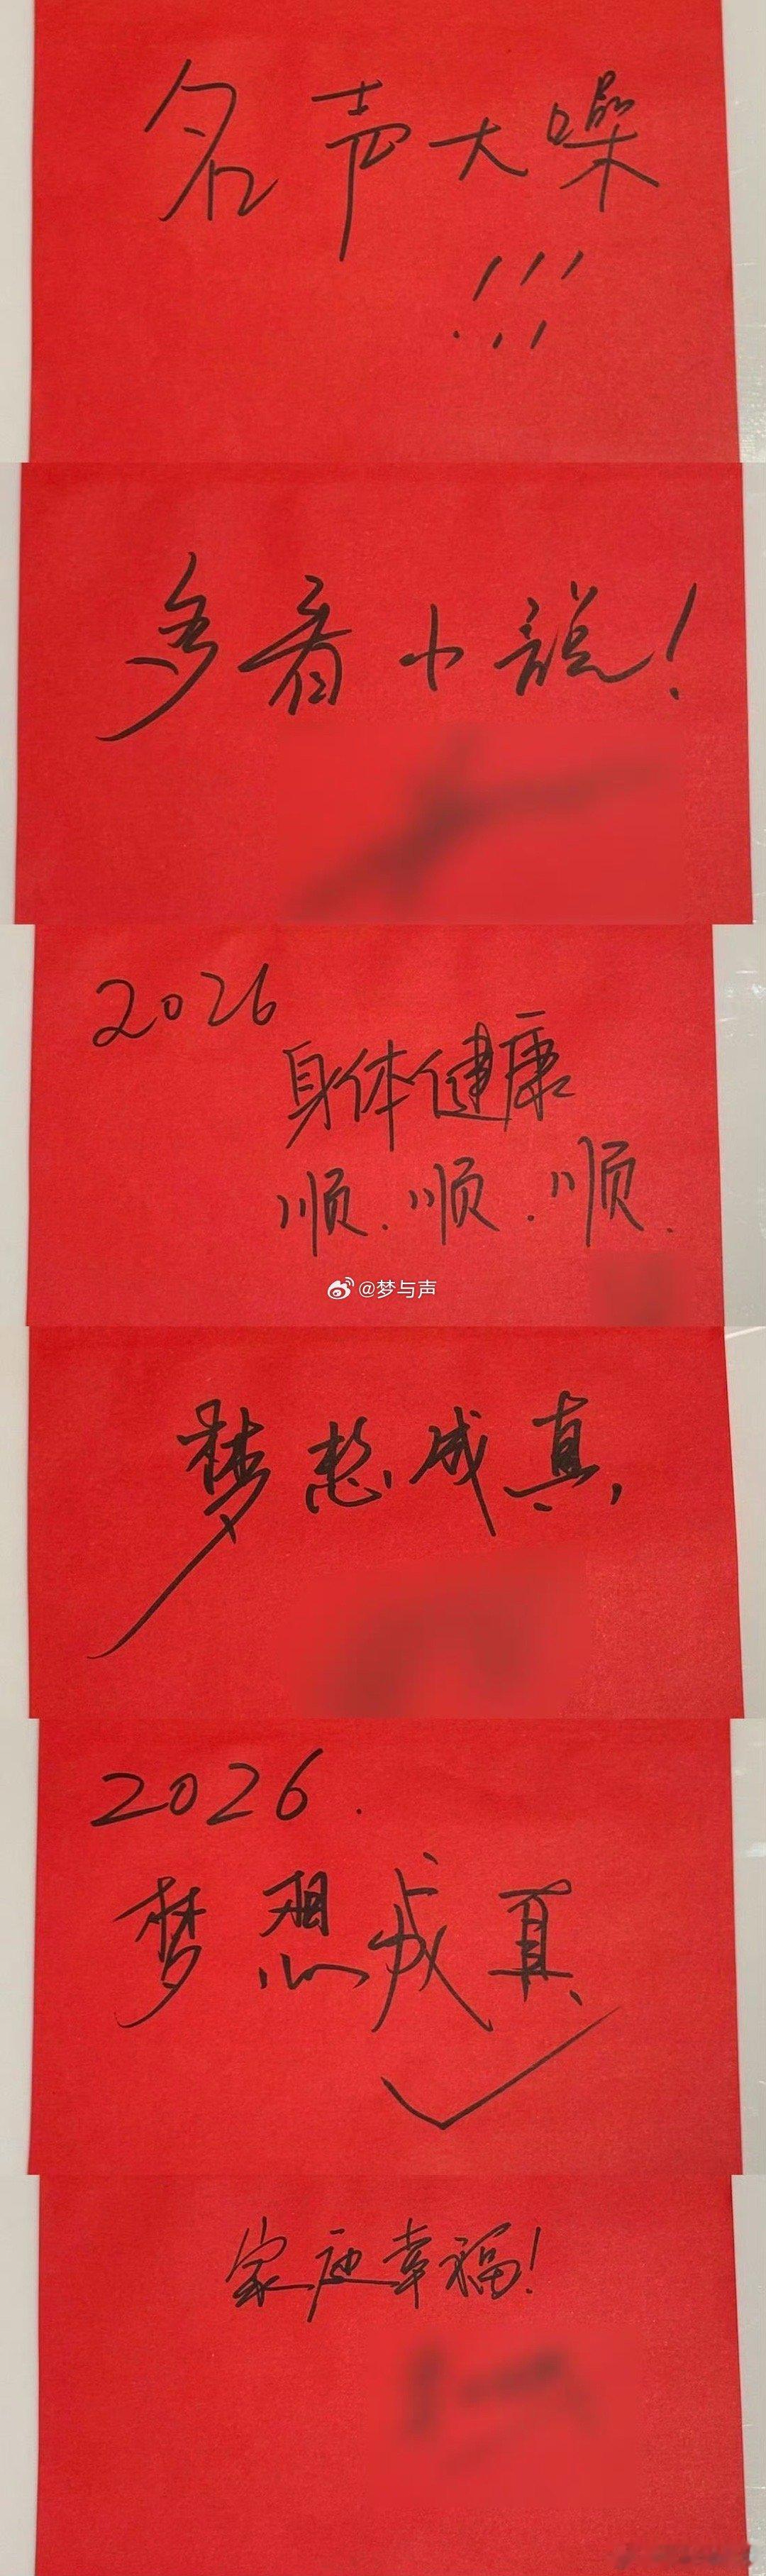 名声大噪
!!!
多看小説!
2026
身体健康
顺.顺.顺.
@梦与声
梦想成真,
2026.
梦想成真
家庭幸福!